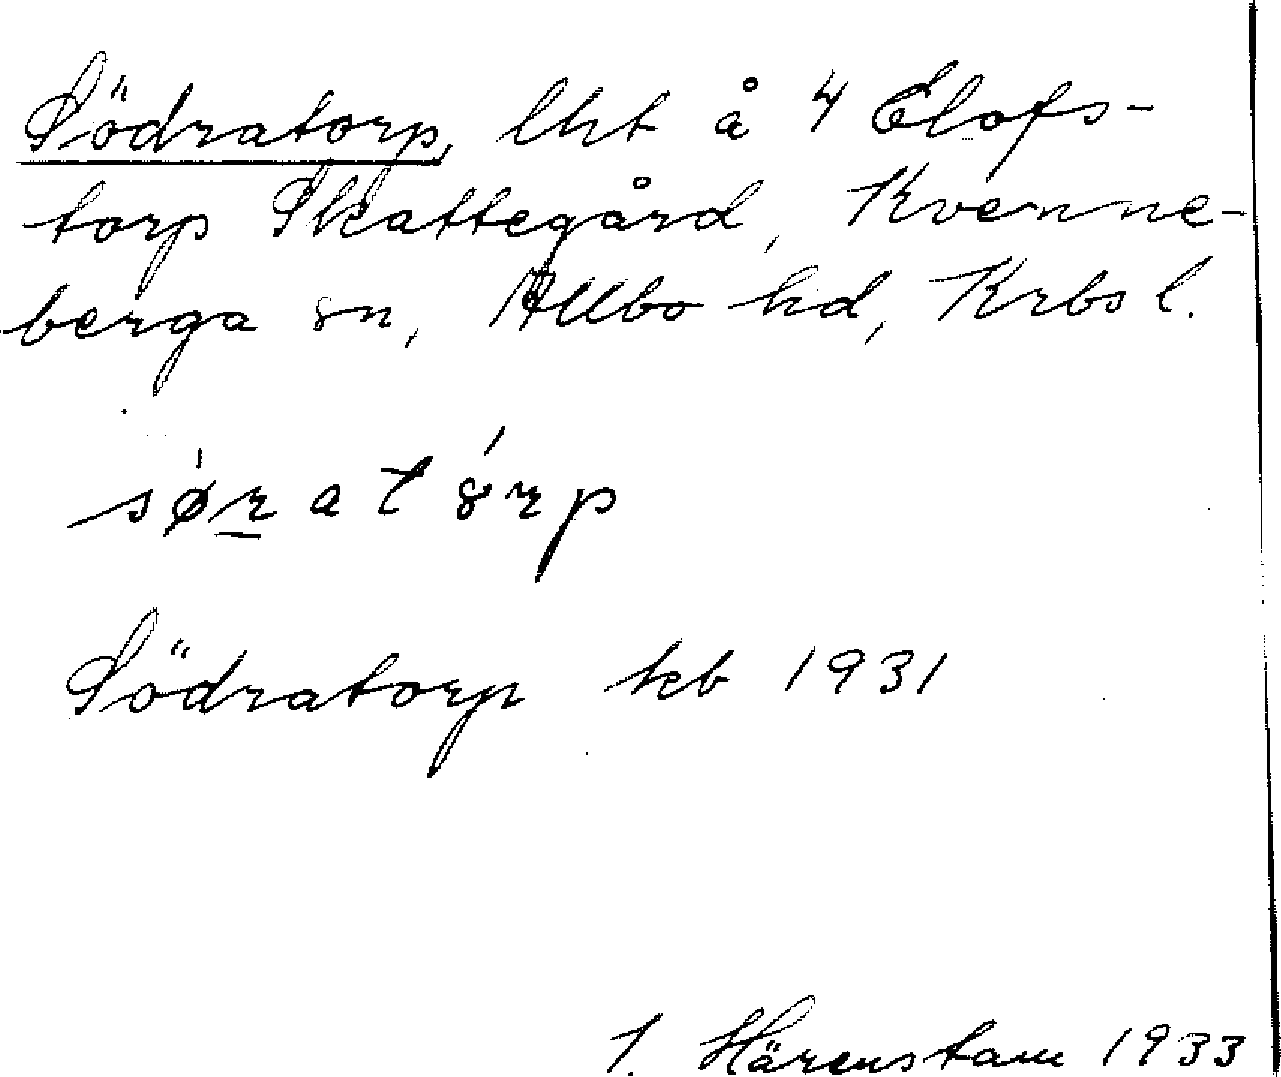 Södratorp, lht å 4 Elofs-
torp Skattegård, Kvenne-
berga sn, Allbo hd, Krbs l.
søratȣrp
Södratorp kb 1931
I. Härenstam 1933